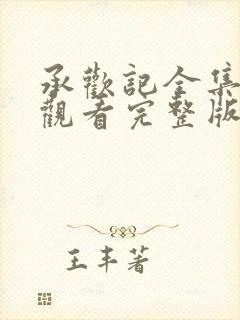 承歡記全集
觀看完整版
王丰著